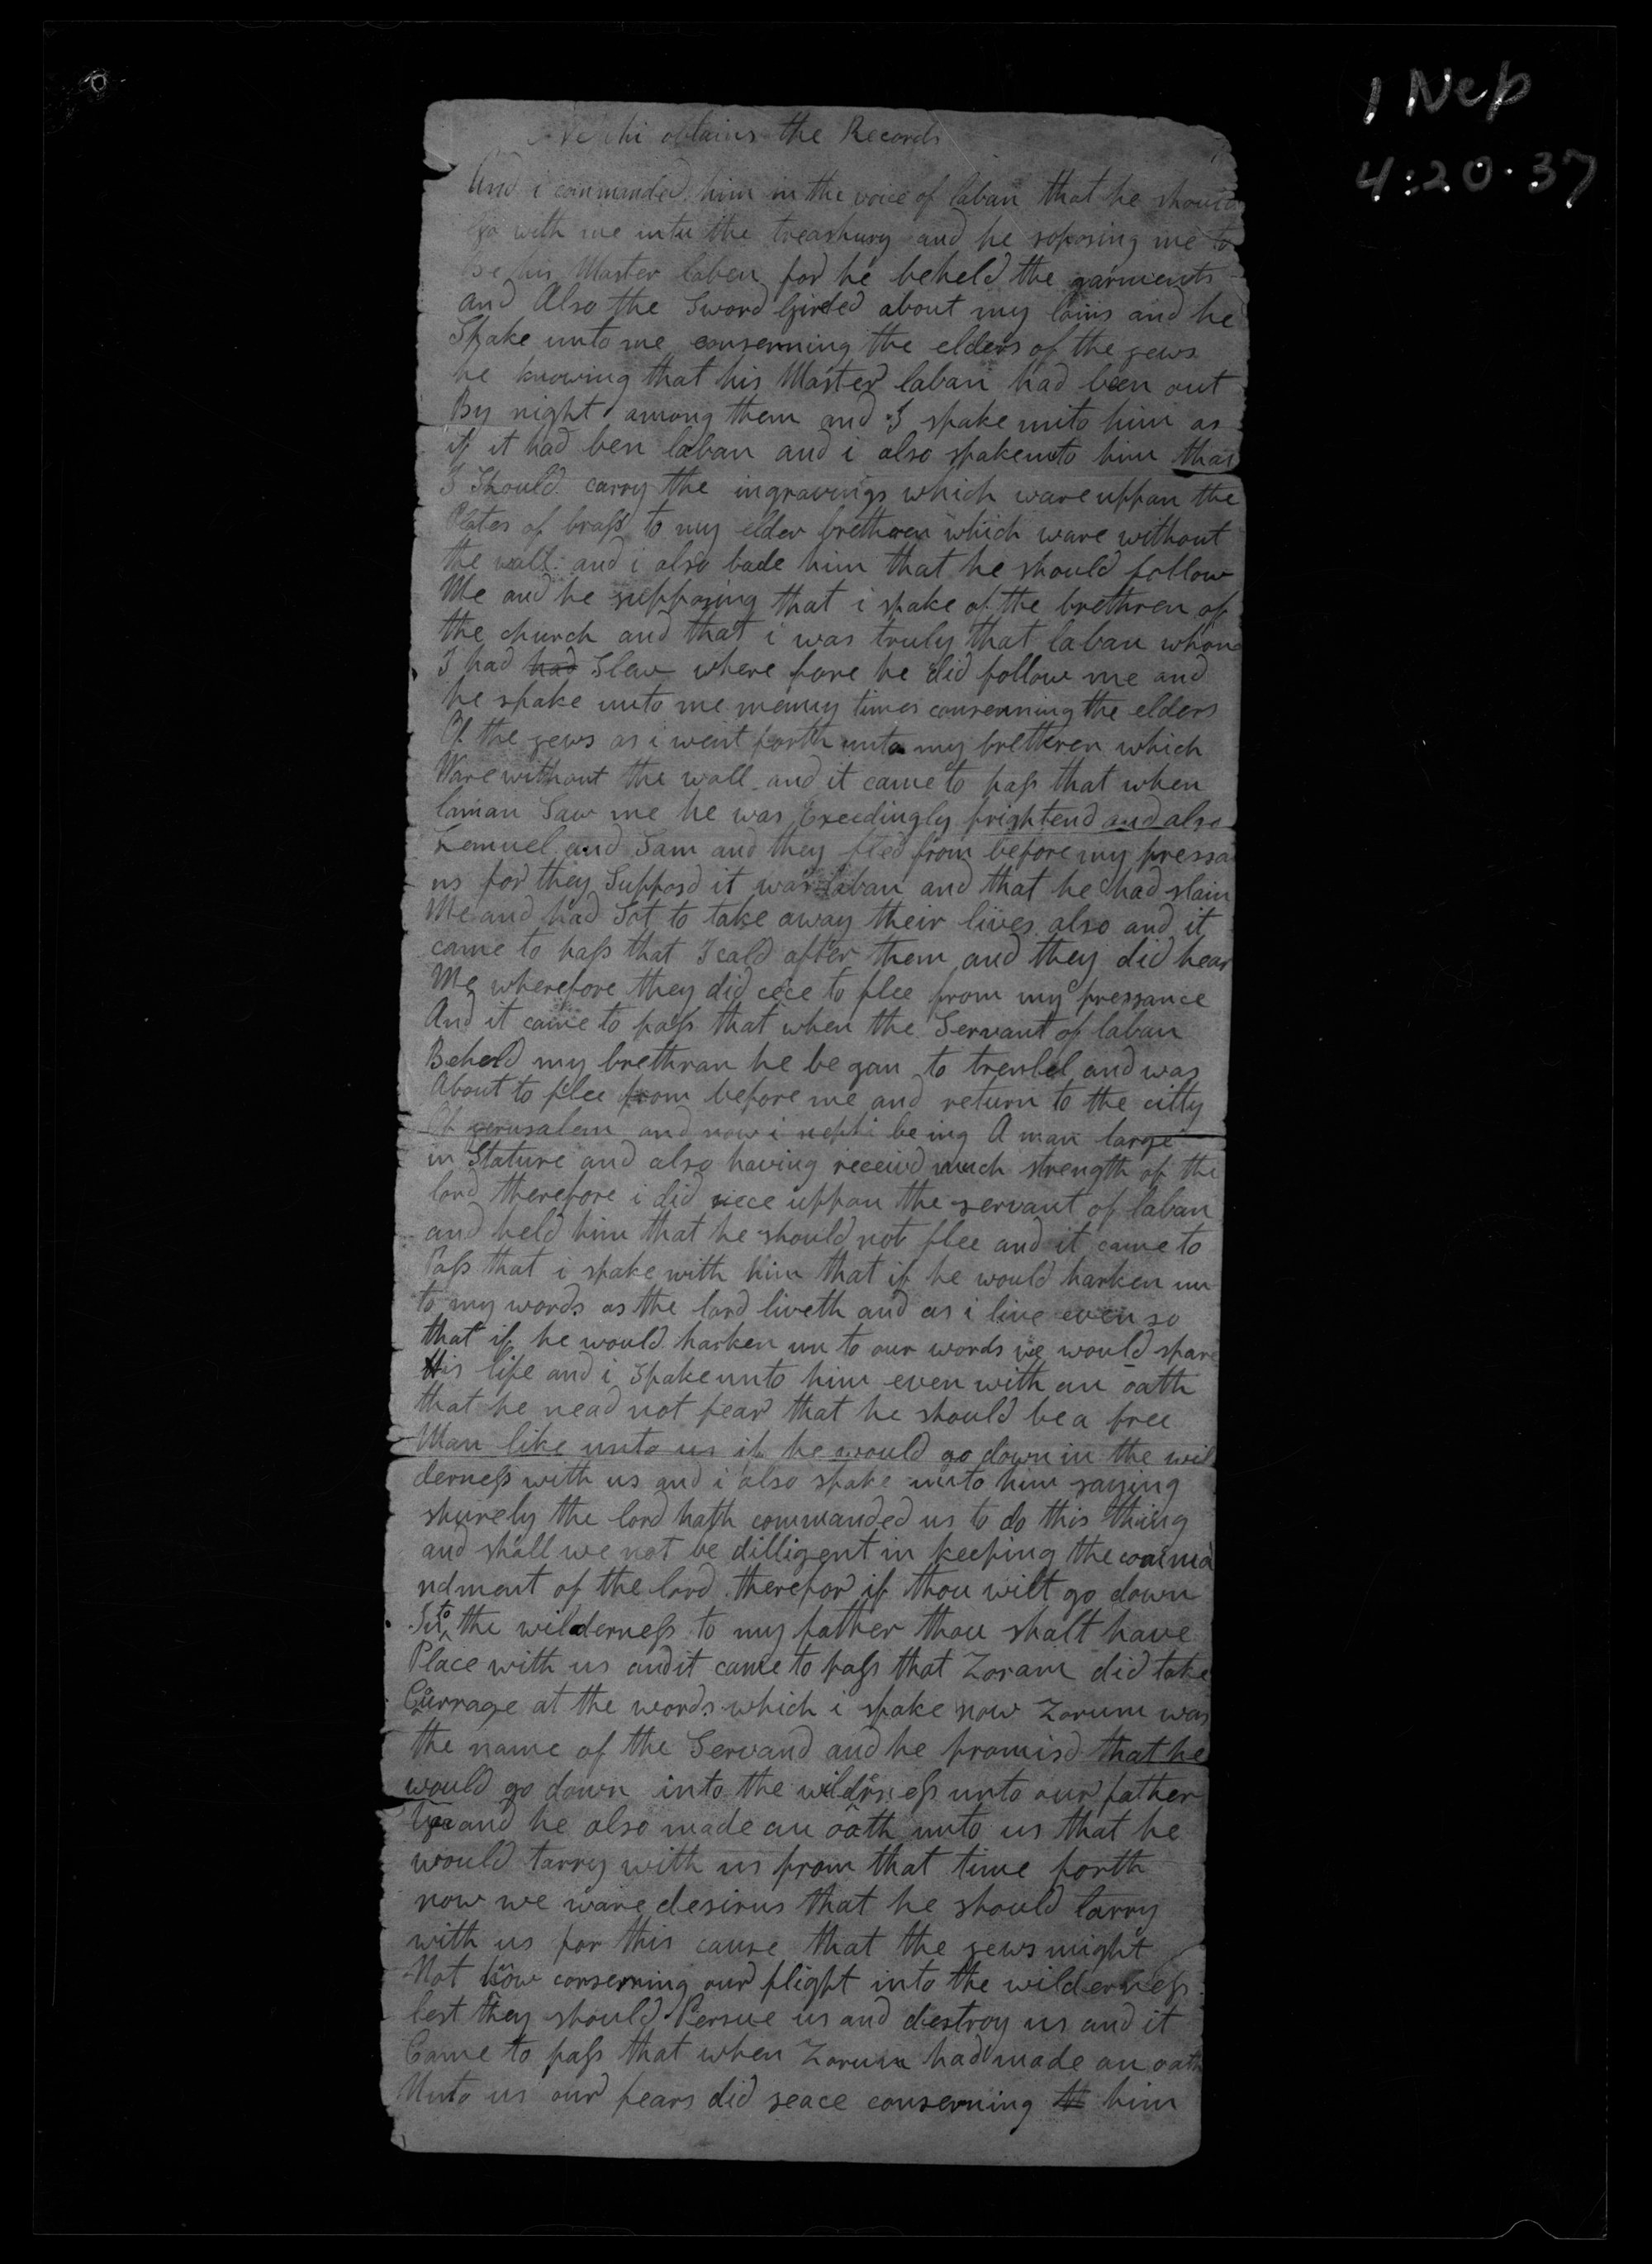 1 Nep
4:20-37
Nephi obtains the Records
And i commanded him in the voice of laban that he should
Go with me intu the treashury and he soposing me to
Be his Master laben for he beheld the garments
and Also the Sword Girded about my loins and he
Spake unto me conserning the elders of the gews
he knowing that his Master laban had been out
By night among them and I spake unto him as
if it had ben laban and i also spakeunto him that
I Should carry the ingravings which ware uppan the
Plates of brass to my elder bretheren which ware without
the wall and i also bade him that he should follow
Me and he supposing that i spake of the brethren of
the church and that i was truly that laban whom
I had had Slew where fore he did follow me and
he spake unto me menny times conserning the elders
Of the gews as i went forth unto my bretheren which
Ware without the wall and it came to pass that when
laman Saw me he was Exeedingly frightend and also
Lemuel and Sam and they fled from before my pressa
ns for they Supposd it was laban and that he had slain
Me and had Sot to take away their lives also and it
came to pass that I cald after them and they did hear
Me wherefore they did cece to flee from my pressance
And it came to pass that when the Servant of laban
Beheld my brethran he be gan to trembel and was
About to flee from before me and return to the citty
Of gerusalem and now i nephi be ing A man large
in Stature and also having receivd much strength of the
lord therefore i did siece uppan the servant of laban
and held him that he should not flee and it came to
Pass that i spake with him that if he would harken un
to my words as the lord liveth and as i live even so
that if he would harken un to our words we would spare
His life and i Spakeunto him even with an oath
that he nead not fear that he should be a free
Man like unto us if he would go down in the wil
derness with us and i also spake unto him saying
shurely the lord hath commanded us to do this thing
and shall we not be dilligent in keeping the comma
ndment of the lord therefor if thou wilt go down
In to the wilderness to my father thou shalt have
Place with us andit came to pass that Zoram did take
Currage at the words which i spake now Zorum was
the name of the Servand and he promisd that he
would go down into the wilderness unto our father
Yea and he also made an oath unto us that he
would tarry with us from that time forth
now we ware desirus that he should tarry
with us for this cause that the gews might
Not know conserning our flight into the wilderness
lest they should Persue us and destroy us and it
Came to pass that when Zorum had made an oath
Unto us our fears did seace conserning him